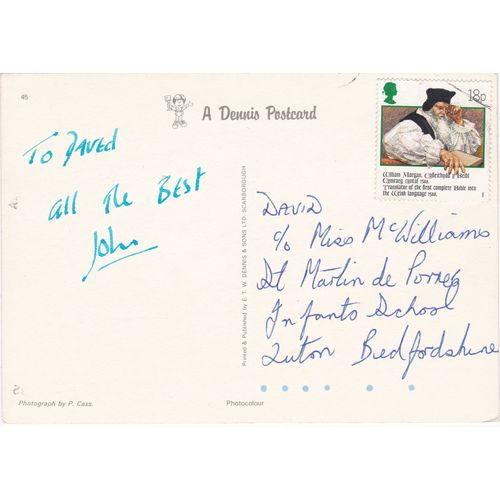 45
A Dennis Postcard
18p
William Morgan. Cyfieithydd y Beibl
Cymraeg cyntaf 1588.
Translator of the first complete Bible into
the Welsh language 1588.
To DAVED
all the BEST
John
Printed & Published by E. T. W. DENNIS & SONS LTD. SCARBOROUGH
DAVID
c/o Miss McWilliams
St Martin de Porres
Infants School
Luton Bedfordshire
Photograph by P. Cass.
Photocolour